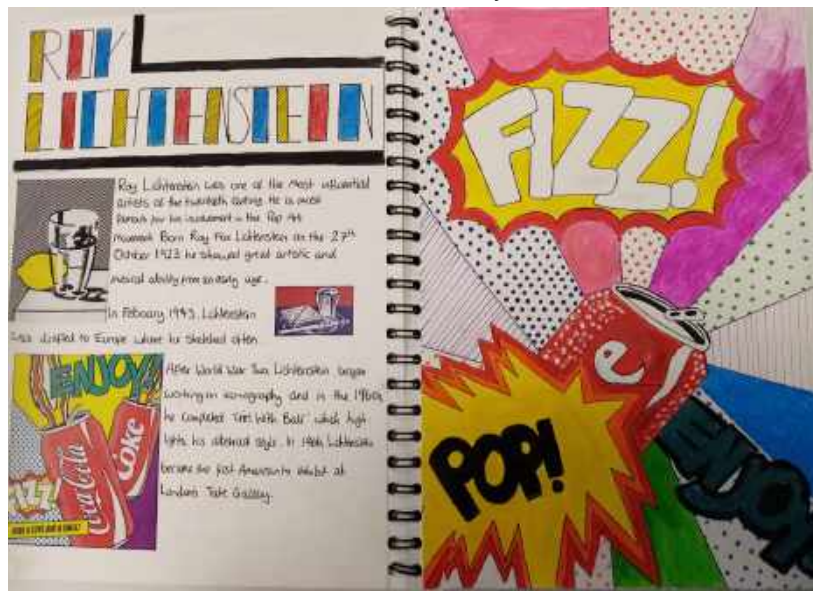 ROY
LICHTENSTEIN
Roy Lichtenstein was one of the most influential
artists of the twentieth century. He is most
famous for his involvement in the Pop Art
movement. Born Roy Fox Lichtenstein on the 27th
October 1923 he showed great artistic and
musical ability from an early age.
In February 1943, Lichtenstein
was drafted to Europe where he sketched often
After World War Two, Lichtenstein began
working on iconography and in the 1960s
he completed 'Girl With Ball' which high
lights his abstract style. In 1966 Lichtenstein
became the first American to exhibit at
London's Tate Gallery.
ENJOY!
Coca-Cola
COKE
FIZZ!
POP!
ENJOY